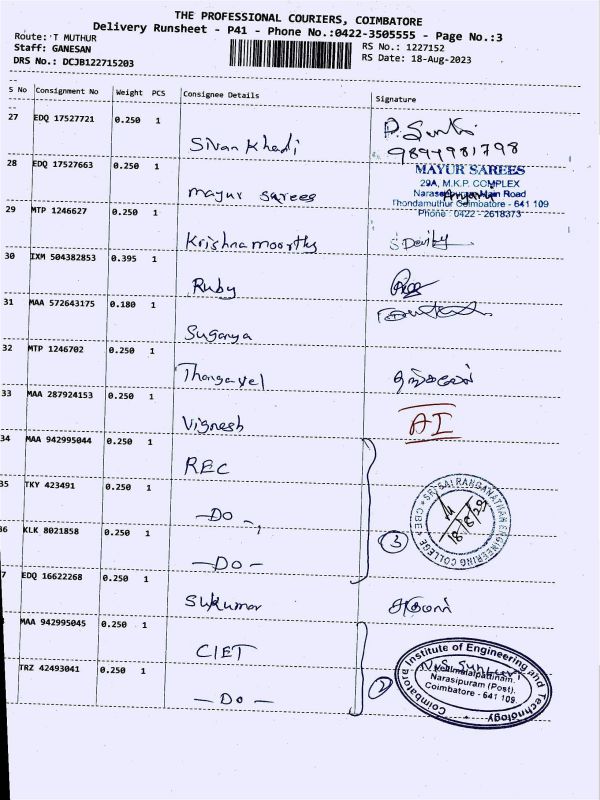 THE PROFESSIONAL COURIERS, COIMBATORE
Delivery Runsheet - P41 - Phone No.:0422-3505555 - Page No.:3
Route: T MUTHUR
RS No.: 1227152
Staff: GANESAN
RS Date: 18-Aug-2023
DRS No.: DCJB122715203
S No Consignment No Weight PCS Consignee Details Signature
27 EDQ 17527721 0.250 1
Sivan Khadi
9894981798
28 EDQ 17527663 0.250 1
mayur sarees
MAYUR SAREES
29A, M.K.P. COMPLEX
Main Road
Thondamuthur Coimbatore - 641 109
Phone : 0422 - 2618373
29 MTP 1246627 0.250 1
Krishnamoorthy
30 IXM 504382853 0.395 1
Ruby
31 MAA 572643175 0.180 1
Suganya
32 MTP 1246702 0.250 1
Thangavel
33 MAA 287924153 0.250 1
Vignesh
AI
34 MAA 942995044 0.250 1
REC
35 TKY 423491 0.250 1
- Do -
36 KLK 8021858 0.250 1
- Do -
3
SRI SAI RANGANATHAN ENGINEERING COLLEGE * CBE *
18/8/23
7 EDQ 16622268 0.250 1
Sukumar
MAA 942995045 0.250 1
CIET
TRZ 42493041 0.250 1
- Do -
2
Coimbatore Institute of Engineering and Technology
Vellimalaipattinam,
Narasipuram (Post),
Coimbatore - 641 109.